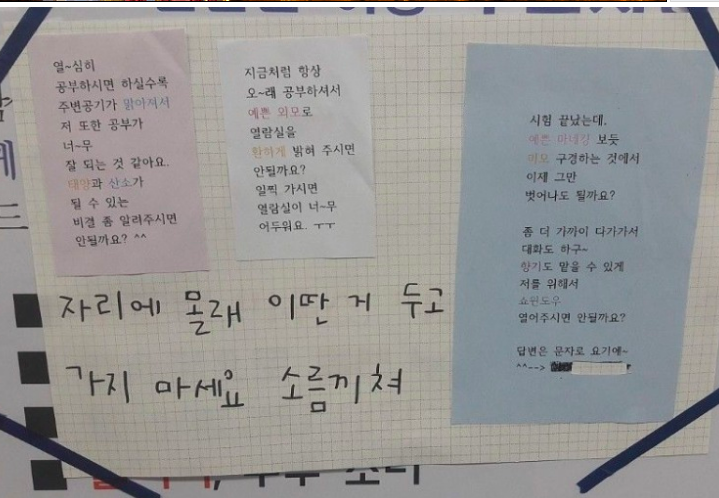 열~심히
공부하시면 하실수록
주변공기가 맑아져서
저 또한 공부가
너~무
잘 되는 것 같아요.
태양과 산소가
될 수 있는
비결 좀 알려주시면
안될까요? ^^
지금처럼 항상
오~래 공부하셔서
예쁜 외모로
열람실을
환하게 밝혀 주시면
안될까요?
일찍 가시면
열람실이 너~무
어두워요. ㅜㅜ
시험 끝났는데,
예쁜 마네킹 보듯
외모 구경하는 것에서
이제 그만
벗어나도 될까요?
좀 더 가까이 다가가서
대화도 하구~
향기도 맡을 수 있게
저를 위해서
쇼윈도우
열어주시면 안될까요?
답변은 문자로 요기에~
^^-->
자리에 몰래 이딴 거 두고
가지 마세요 소름끼쳐